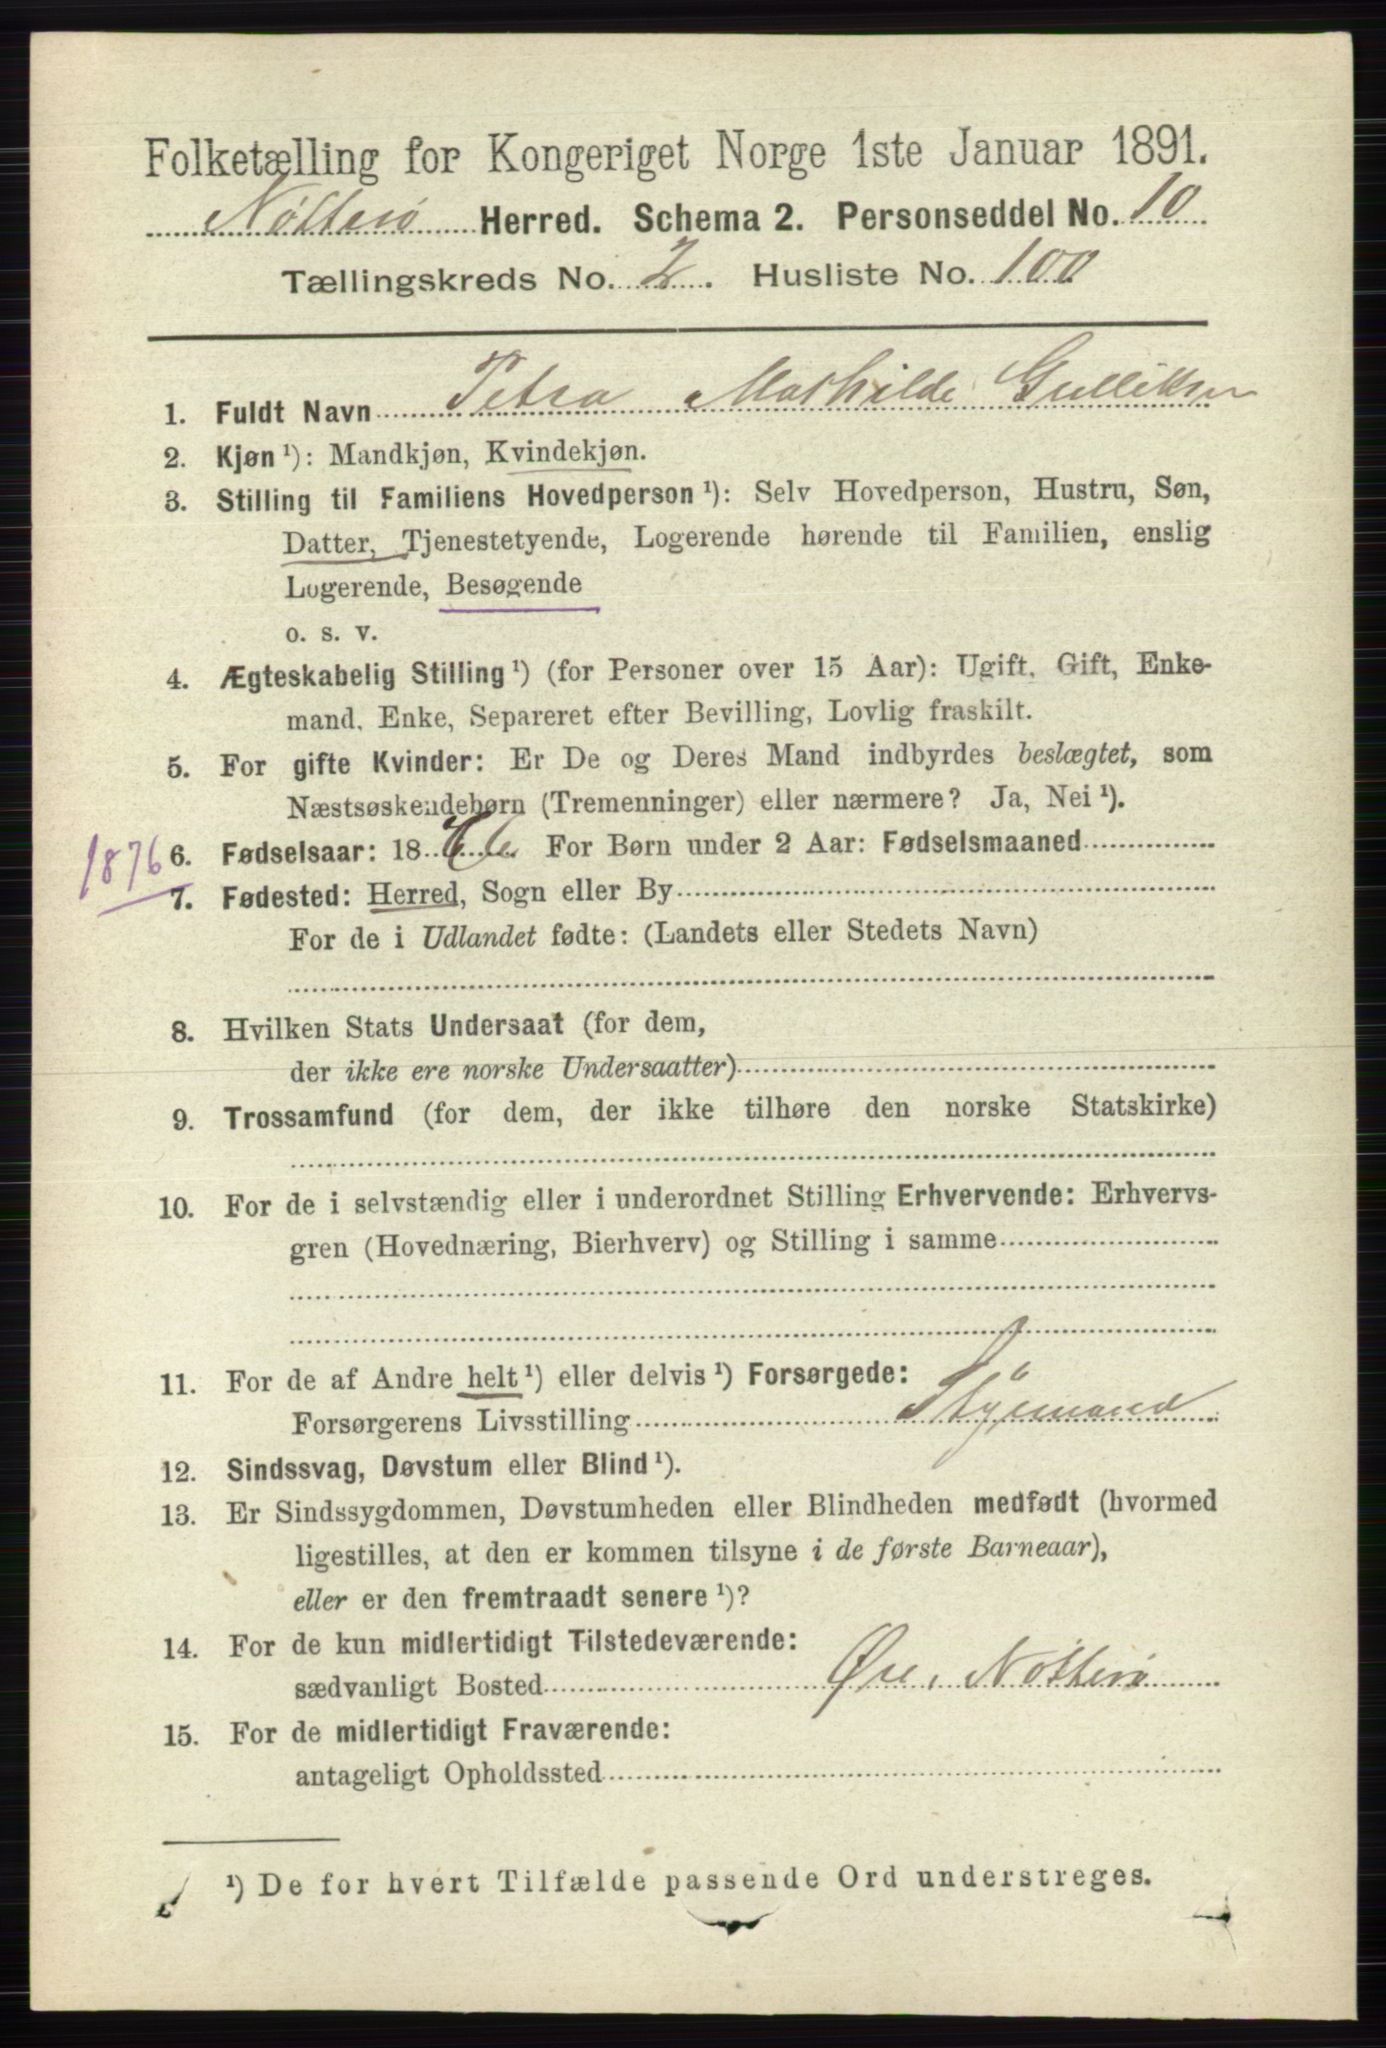 Folketælling for Kongeriget Norge 1ste Januar 1891.
Nötterö Herred. Schema 2. Personseddel No. 10
Tællingskreds No. 2. Husliste No. 100
1. Fuldt Navn Petra Mathilde Gulliksen
2. Kjøn ¹): Mandkjøn, Kvindekjøn.
3. Stilling til Familiens Hovedperson ¹): Selv Hovedperson, Hustru, Søn,
Datter, Tjenestetyende, Logerende hørende til Familien, enslig
Logerende, Besøgende
o. s. v.
4. Ægteskabelig Stilling ¹) (for Personer over 15 Aar): Ugift, Gift, Enke-
mand, Enke, Separeret efter Bevilling, Lovlig fraskilt.
5. For gifte Kvinder: Er De og Deres Mand indbyrdes beslægtet, som
Næstsøskendebørn (Tremenninger) eller nærmere? Ja, Nei ¹).
1876
6. Fødselsaar: 18 For Børn under 2 Aar: Fødselsmaaned
7. Fødested: Herred, Sogn eller By
For de i Udlandet fødte: (Landets eller Stedets Navn)
8. Hvilken Stats Undersaat (for dem,
der ikke ere norske Undersaatter)
9. Trossamfund (for dem, der ikke tilhøre den norske Statskirke)
10. For de i selvstændig eller i underordnet Stilling Erhvervende: Erhvervs-
gren (Hovednæring, Bierhverv) og Stilling i samme
11. For de af Andre helt ¹) eller delvis ¹) Forsørgede:
Forsørgerens Livsstilling
12. Sindssvag, Døvstum eller Blind ¹).
13. Er Sindssygdommen, Døvstumheden eller Blindheden medfødt (hvormed
ligestilles, at den er kommen tilsyne i de første Barneaar),
eller er den fremtraadt senere ¹)?
14. For de kun midlertidigt Tilstedeværende:
sædvanligt Bosted Øre, Nötterö
15. For de midlertidigt Fraværende:
antageligt Opholdssted
¹) De for hvert Tilfælde passende Ord understreges.